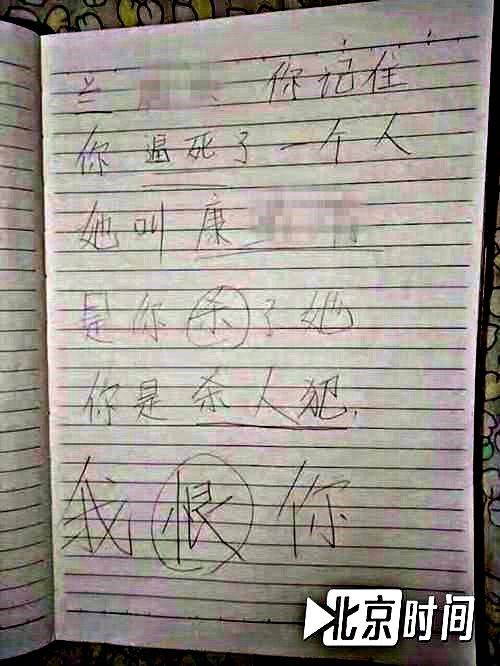 兰 你记住
你逼死了一个人
她叫康
是你杀了她
你是杀人犯.
我恨你
北京时间